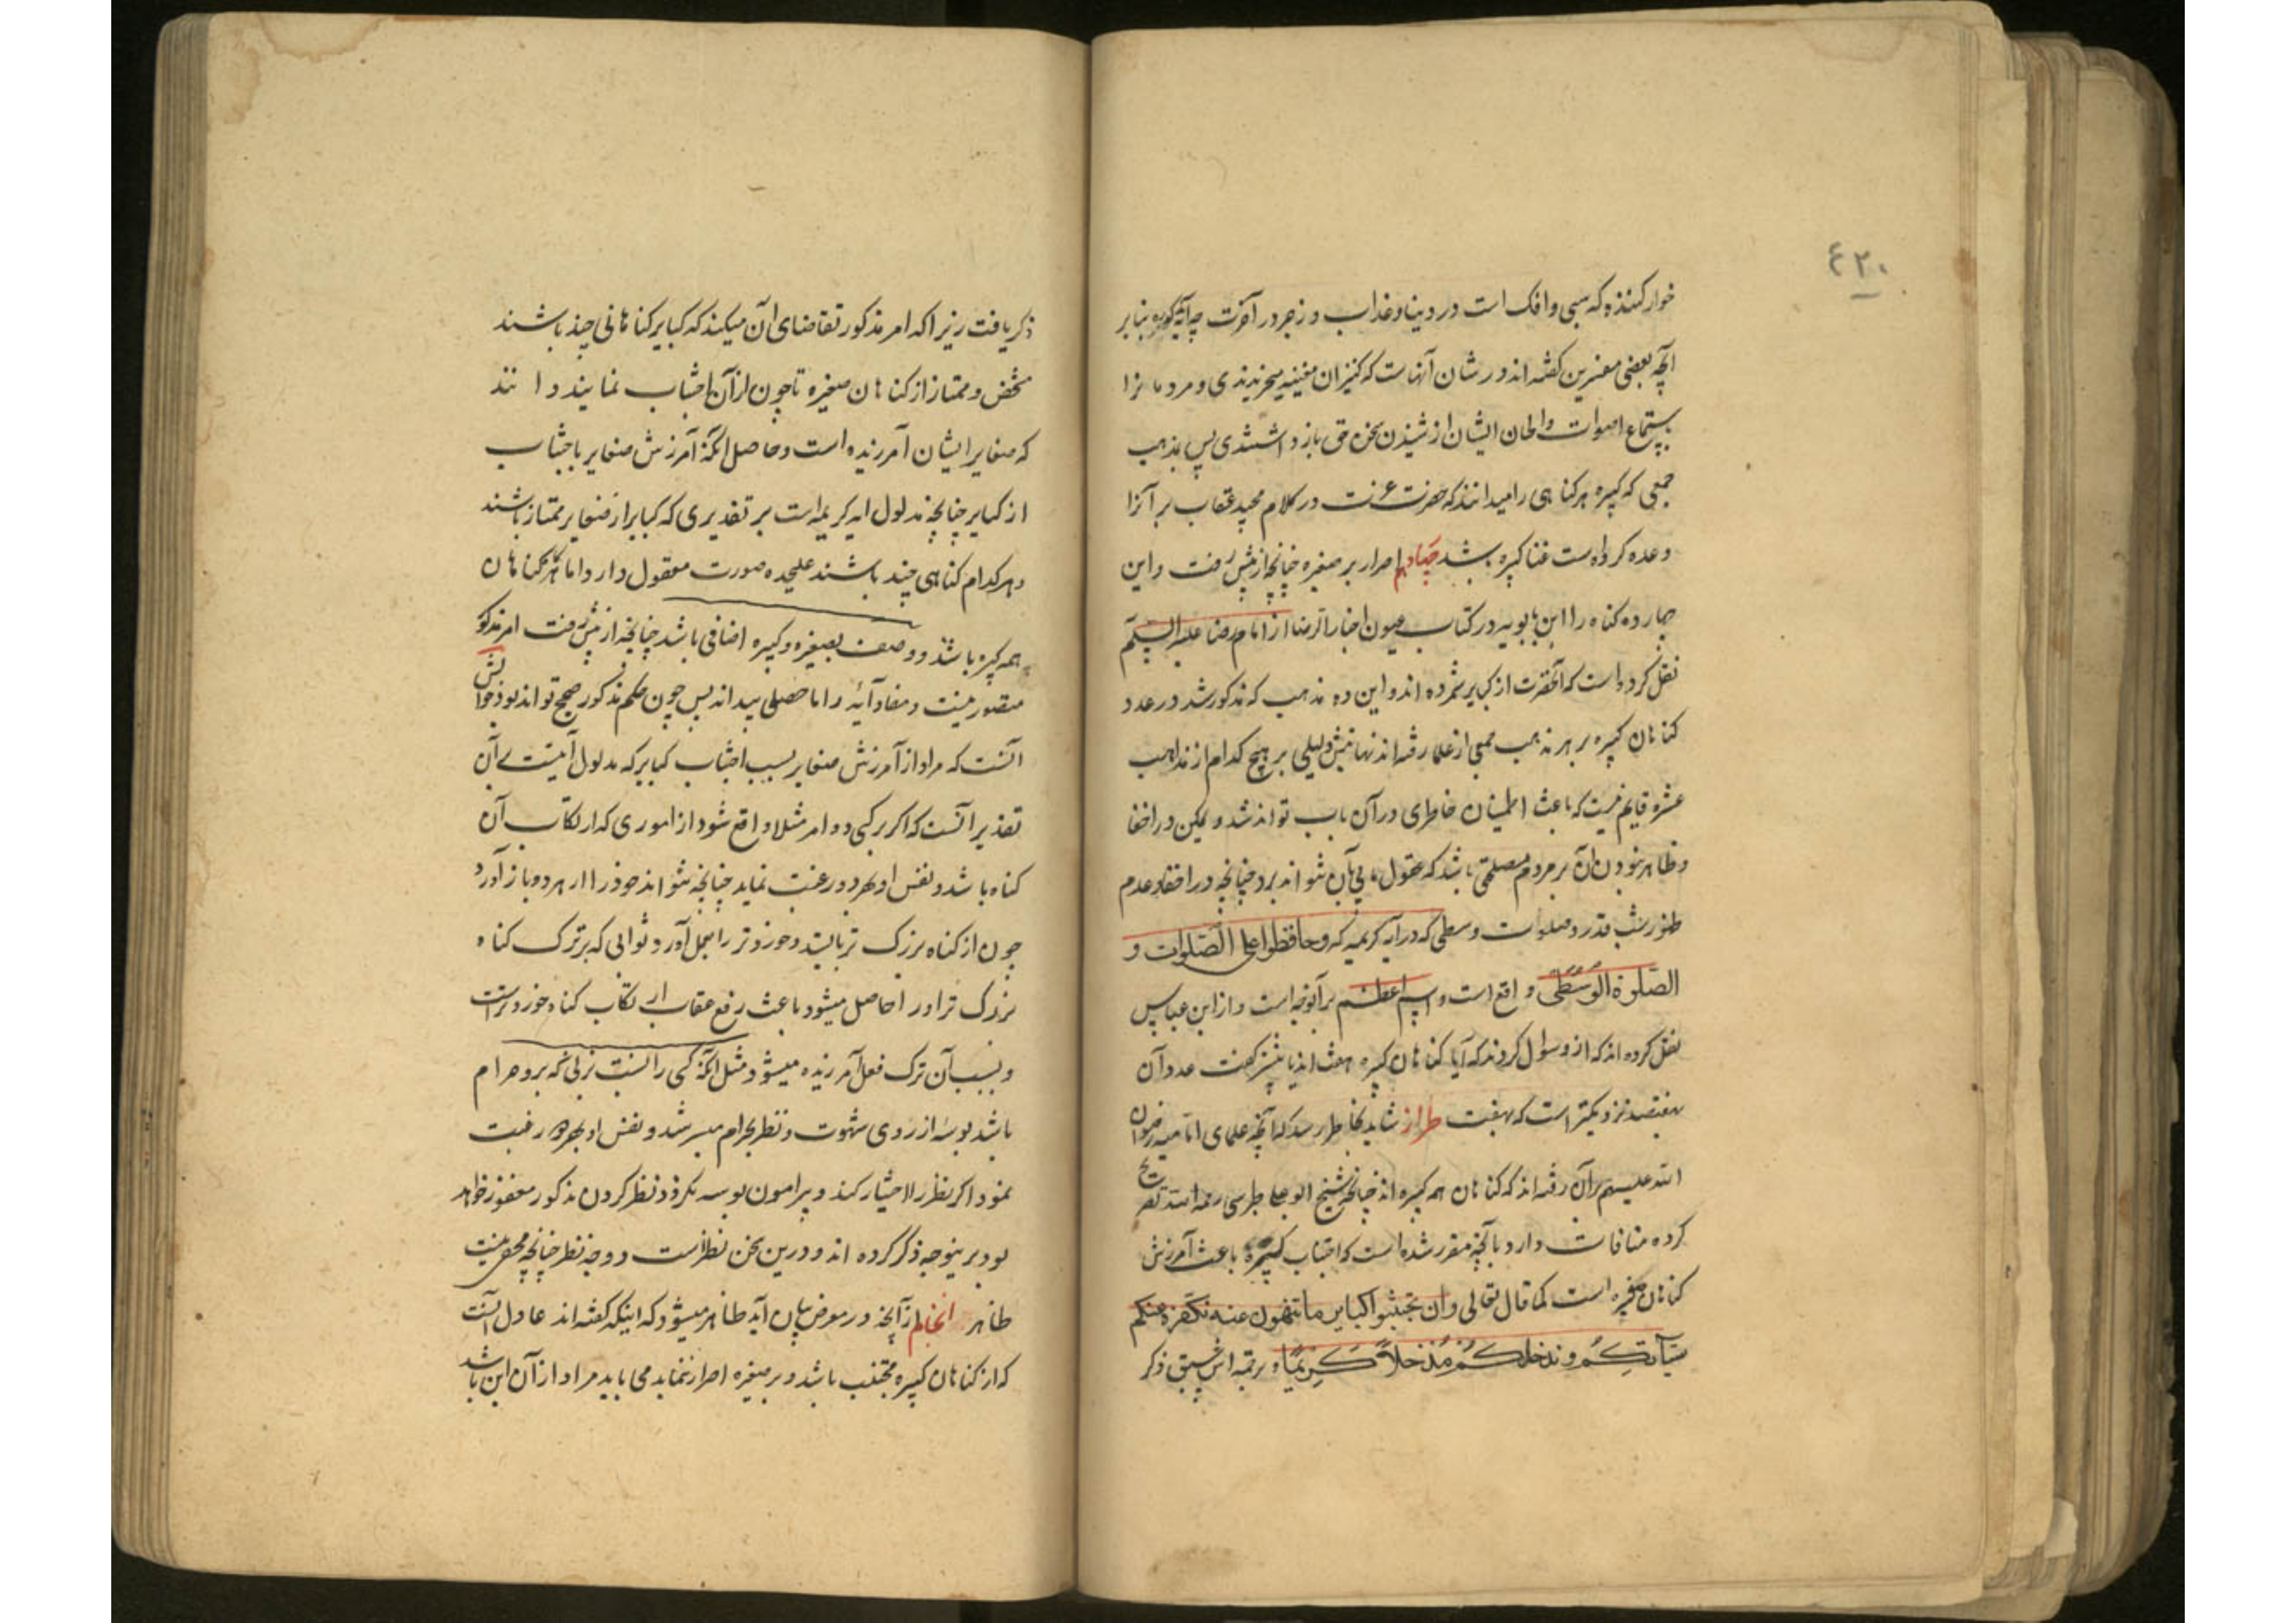 ۴۲۰
خوار کننده که سبی و افک است در دنیا و عذاب و زجر در آخرت چه آیه کریمه بنابر
آنچه بعضی مفسرین گفته اند در شان آنهاست که کنیزان مغنیه میخریدندی و مردمانرا
باستماع اصوات و الحان ایشان از شنیدن سخن حق باز داشتندی پس بمذهب
جمعی که کبیره هر گناهی را میدانند که حضرت عزت در کلام مجید عقاب بر آنرا
وعده کرده است غنا کبیره باشد چهاردهم اصرار بر صغیره چنانچه از پیش رفت و این
چهارده گناه را ابن بابویه در کتاب عیون اخبار الرضا از امام رضا علیه السلام
نقل کرده است که آنحضرت از کبایر شمرده اند و این ده مذهب که مذکور شد در عدد
گناهان کبیره بر هر مذهب جمعی از علما رفته اند نهایتش دلیلی بر هیچ کدام از مذاهب
عشره قایم نیست که باعث اطمینان خاطری در آن باب تواند شد و یمکن در اخفا
و ظاهر نبودن آن بر مردم مصلحتی باشد که عقول ما پی بآن نتواند برد چنانچه در اختفا و عدم
ظهور شب قدر و صلوات وسطی که در آیه کریمه که وحافظوا علی الصلوات و
الصلوة الوسطی واقع است و اسم اعظم بر آنوجه است و از ابن عباس
نقل کرده اند که از و سوال کردند که آیا گناهان کبیره هفت اند یا بیشتر گفت عدد آن
بهفتصد نزدیکتر است که بهفت طراز شاید بخاطر رسد که آنچه علمای امامیه رضوان
الله علیهم بر آن رفته اند که گناهان همه کبیره اند چنانچه شیخ ابو علی طبرسی رحمه الله تصریح
کرده منافات دارد بآنچه مقرر شده است که اجتناب کبیره باعث آمرزش
گناهان صغیره است کما قال تعالی وان تجتنبوا کبایر ما تنهون عنه نکفر عنکم
سیآتکم وندخلکم مدخلاً کریماً و بر تتمه اش سبق ذکر
ذکر یافت زیرا که امر مذکور تقاضای آن میکند که کبایر گناهانی چند باشند
مشخص و ممتاز از گناهان صغیره تا چون از آن اجتناب نمایند دانند
که صغایر ایشان آمرزیده است و حاصل آنکه آمرزش صغایر باجتناب
از کبایر چنانچه مدلول ایه کریمه است بر تقدیری که کبایر از صغایر ممتاز باشند
و هر کدام گناهی چند باشند علیحده صورت معقول دارد اما هرگاه گناهان
همه کبیره باشند و وصف بصغیره و کبیره اضافی باشد چنانچه از پیش رفت امر مذکور
متصور نیست و مفاد آیه را ما حصلی پیدا نه پس چون حکم مذکور صحیح تواند بود جوابش
آنست که مراد از آمرزش صغایر بسبب اجتناب کبایر که مدلول آیتست بر آن
تقدیر آنست که اگر بر کسی دو امر مثلا واقع شود از اموری که ارتکاب آن
گناه باشد و نفس او بهر دو رغبت نماید چنانچه نتواند خود را از هر دو باز آورد
چون از گناه بزرگ تر بایستد و خوردتر را بعمل آورد ثوابی که بر ترک گناه
بزرگ تر او را حاصل میشود باعث رفع عقاب ارتکاب گناه خوردتر است
و بسبب آن ترک فعل آمرزیده میشود مثل آنکه کسی را نسبت بزنی که برو حرام
باشد بوسه از روی شهوت و نظر بحرام میسر شد و نفس او بهر دو رغبت
نمود اگر نظر را اختیار کند و پیرامون بوسه نگردد نظر کردن مذکور مغفور خواهد
بود بر ینوجه ذکر کرده اند و درین سخن نظر است و وجه نظر چنانچه مخفی نیست
ظاهر انجام از آنچه در معرض بیان آید ظاهر میشود که اینکه گفته اند عادل آنست
که از گناهان کبیره مجتنب باشد و بر صغیره اصرار ننماید می باید مراد از آن این باشد